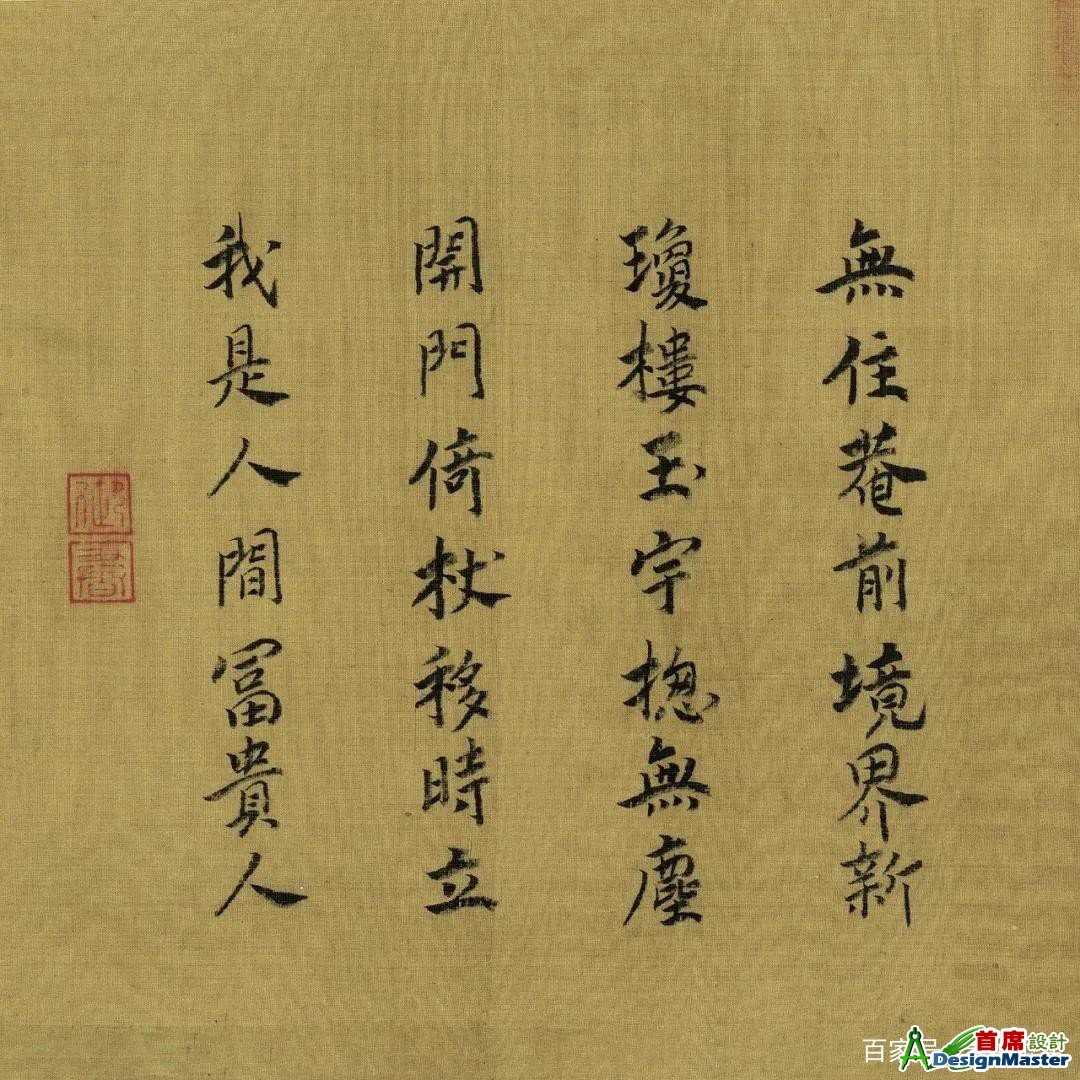 無住菴前境界新
瓊樓玉宇揔無塵
開門倚杖移時立
我是人間冨貴人
御書
百家号
首席設計
ADesignMaster